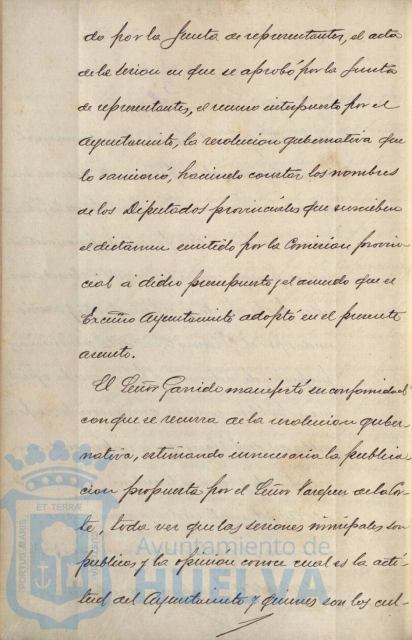 do por la Junta de representantes, el acta
de la sesion en que se aprobó por la Junta
de representantes, el recurso interpuesto por el
Ayuntamiento, la resolucion gubernativa que
lo sancionó, haciendo constar los nombres
de los Diputados provinciales que suscriben
el dictamen emitido por la Comision provin-
cial á dicho presupuesto y el acuerdo que el
Excmo Ayuntamiento adoptó en el presente
asunto.
El Señor Garrido manifestó su conformidad
con que se recurra de la resolucion guber-
nativa, estimando innecesaria la publica-
cion propuesta por el Señor Vazquez de la Cor-
te, toda vez que las sesiones municipales son
publicas y la opinión conoce cual es la acti-
tud del Ayuntamiento y quienes son los cul-
PORTUS MARIS
ET TERRAE
Ayuntamiento de
HUELVA